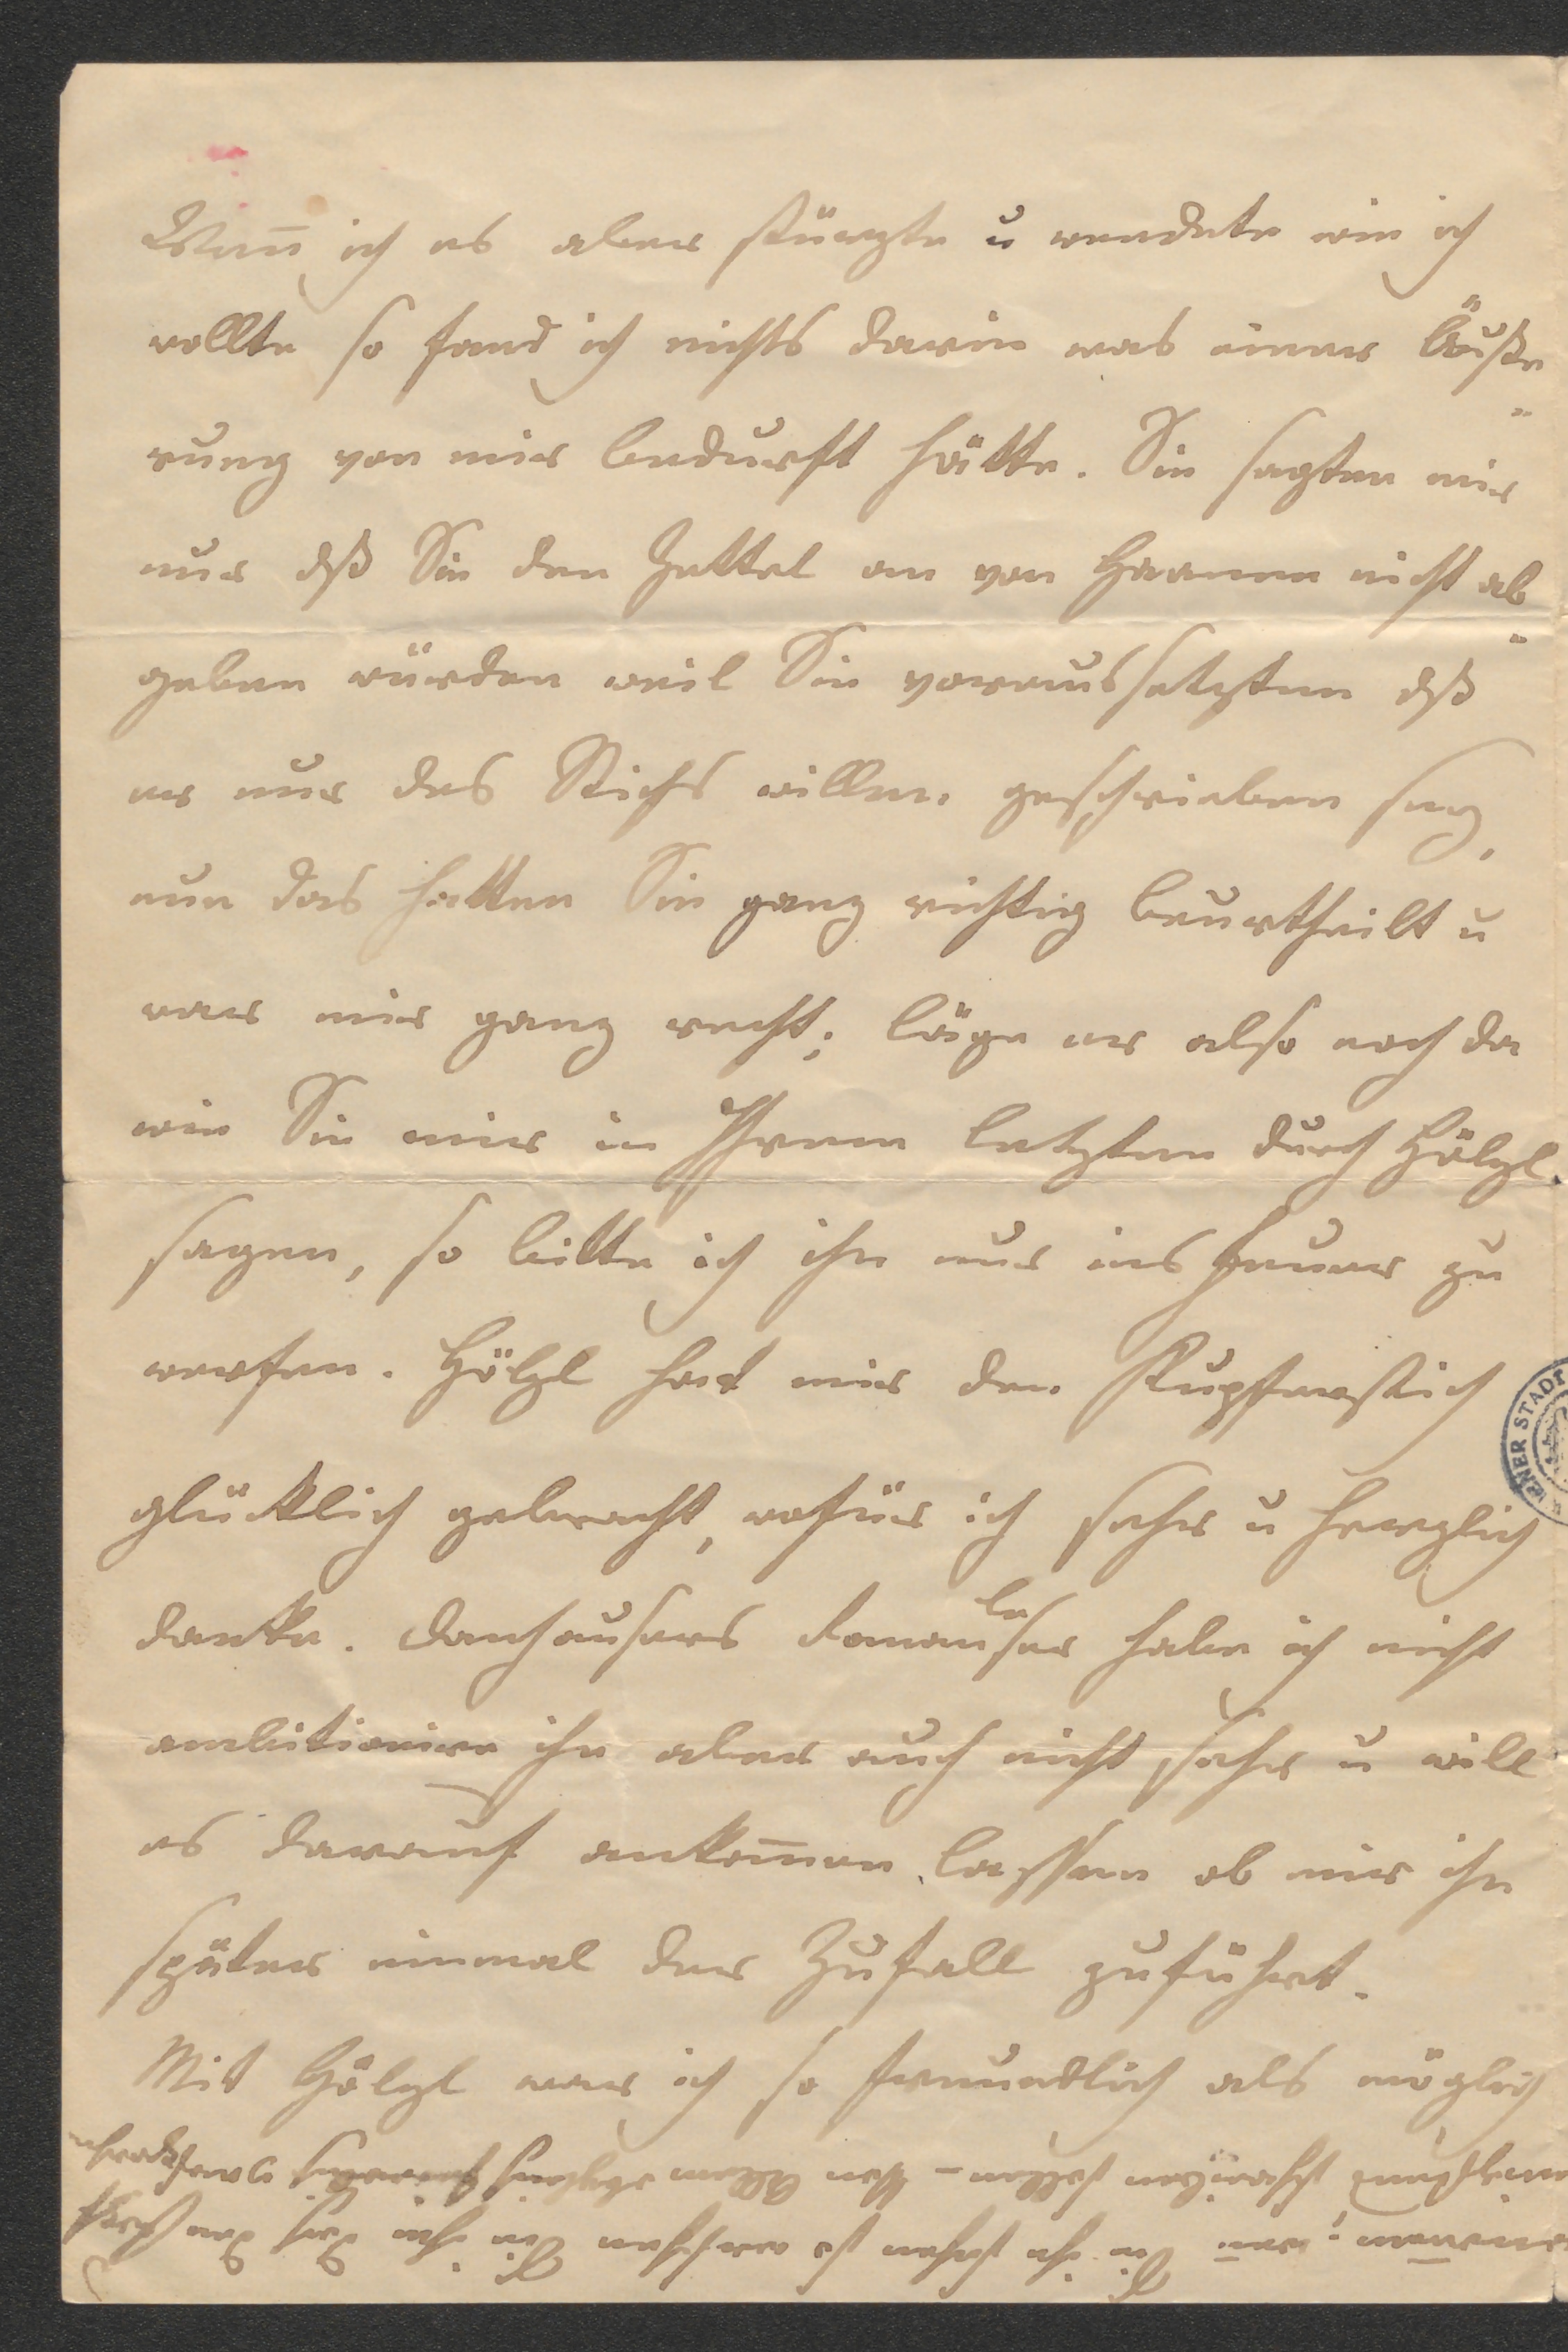 Wan̄ ich es aber stürzte u wendete wie ich
wollte so fand ich nichts darin was einer Äuße
rung von mir bedurft hätte. Sie sagten mir
nur dß Sie den Zettel an von Haanen nicht ab
geben würden weil Sie voraussetzten dß
er nur des Stichs willen geschrieben sey,
nun das hatten Sie ganz richtig beurtheilt u
war mir ganz recht; läge er also noch da
wie Sie mir in Ihrem letzten durch Hölzl.
sagen, so bitte ich ihn nur ins Feuer zu
werfen. Hölzl hat mir den Kupferstich
glücklich gebracht, wofür ich sehr u herzlich
danke. Danhausers habe ich nicht
ambitionire ihn aber auch nicht sehr u will
es darauf ankom̄en lassen ob mir ihn
später einmal der Zufall zuführt.
Mit Hölzl war ich so freundlich als möglich
wen̄ Sie ihn sehen so ersuchen Sie ihn daß
schweigen sollen – Von Allem
WIENER STADT